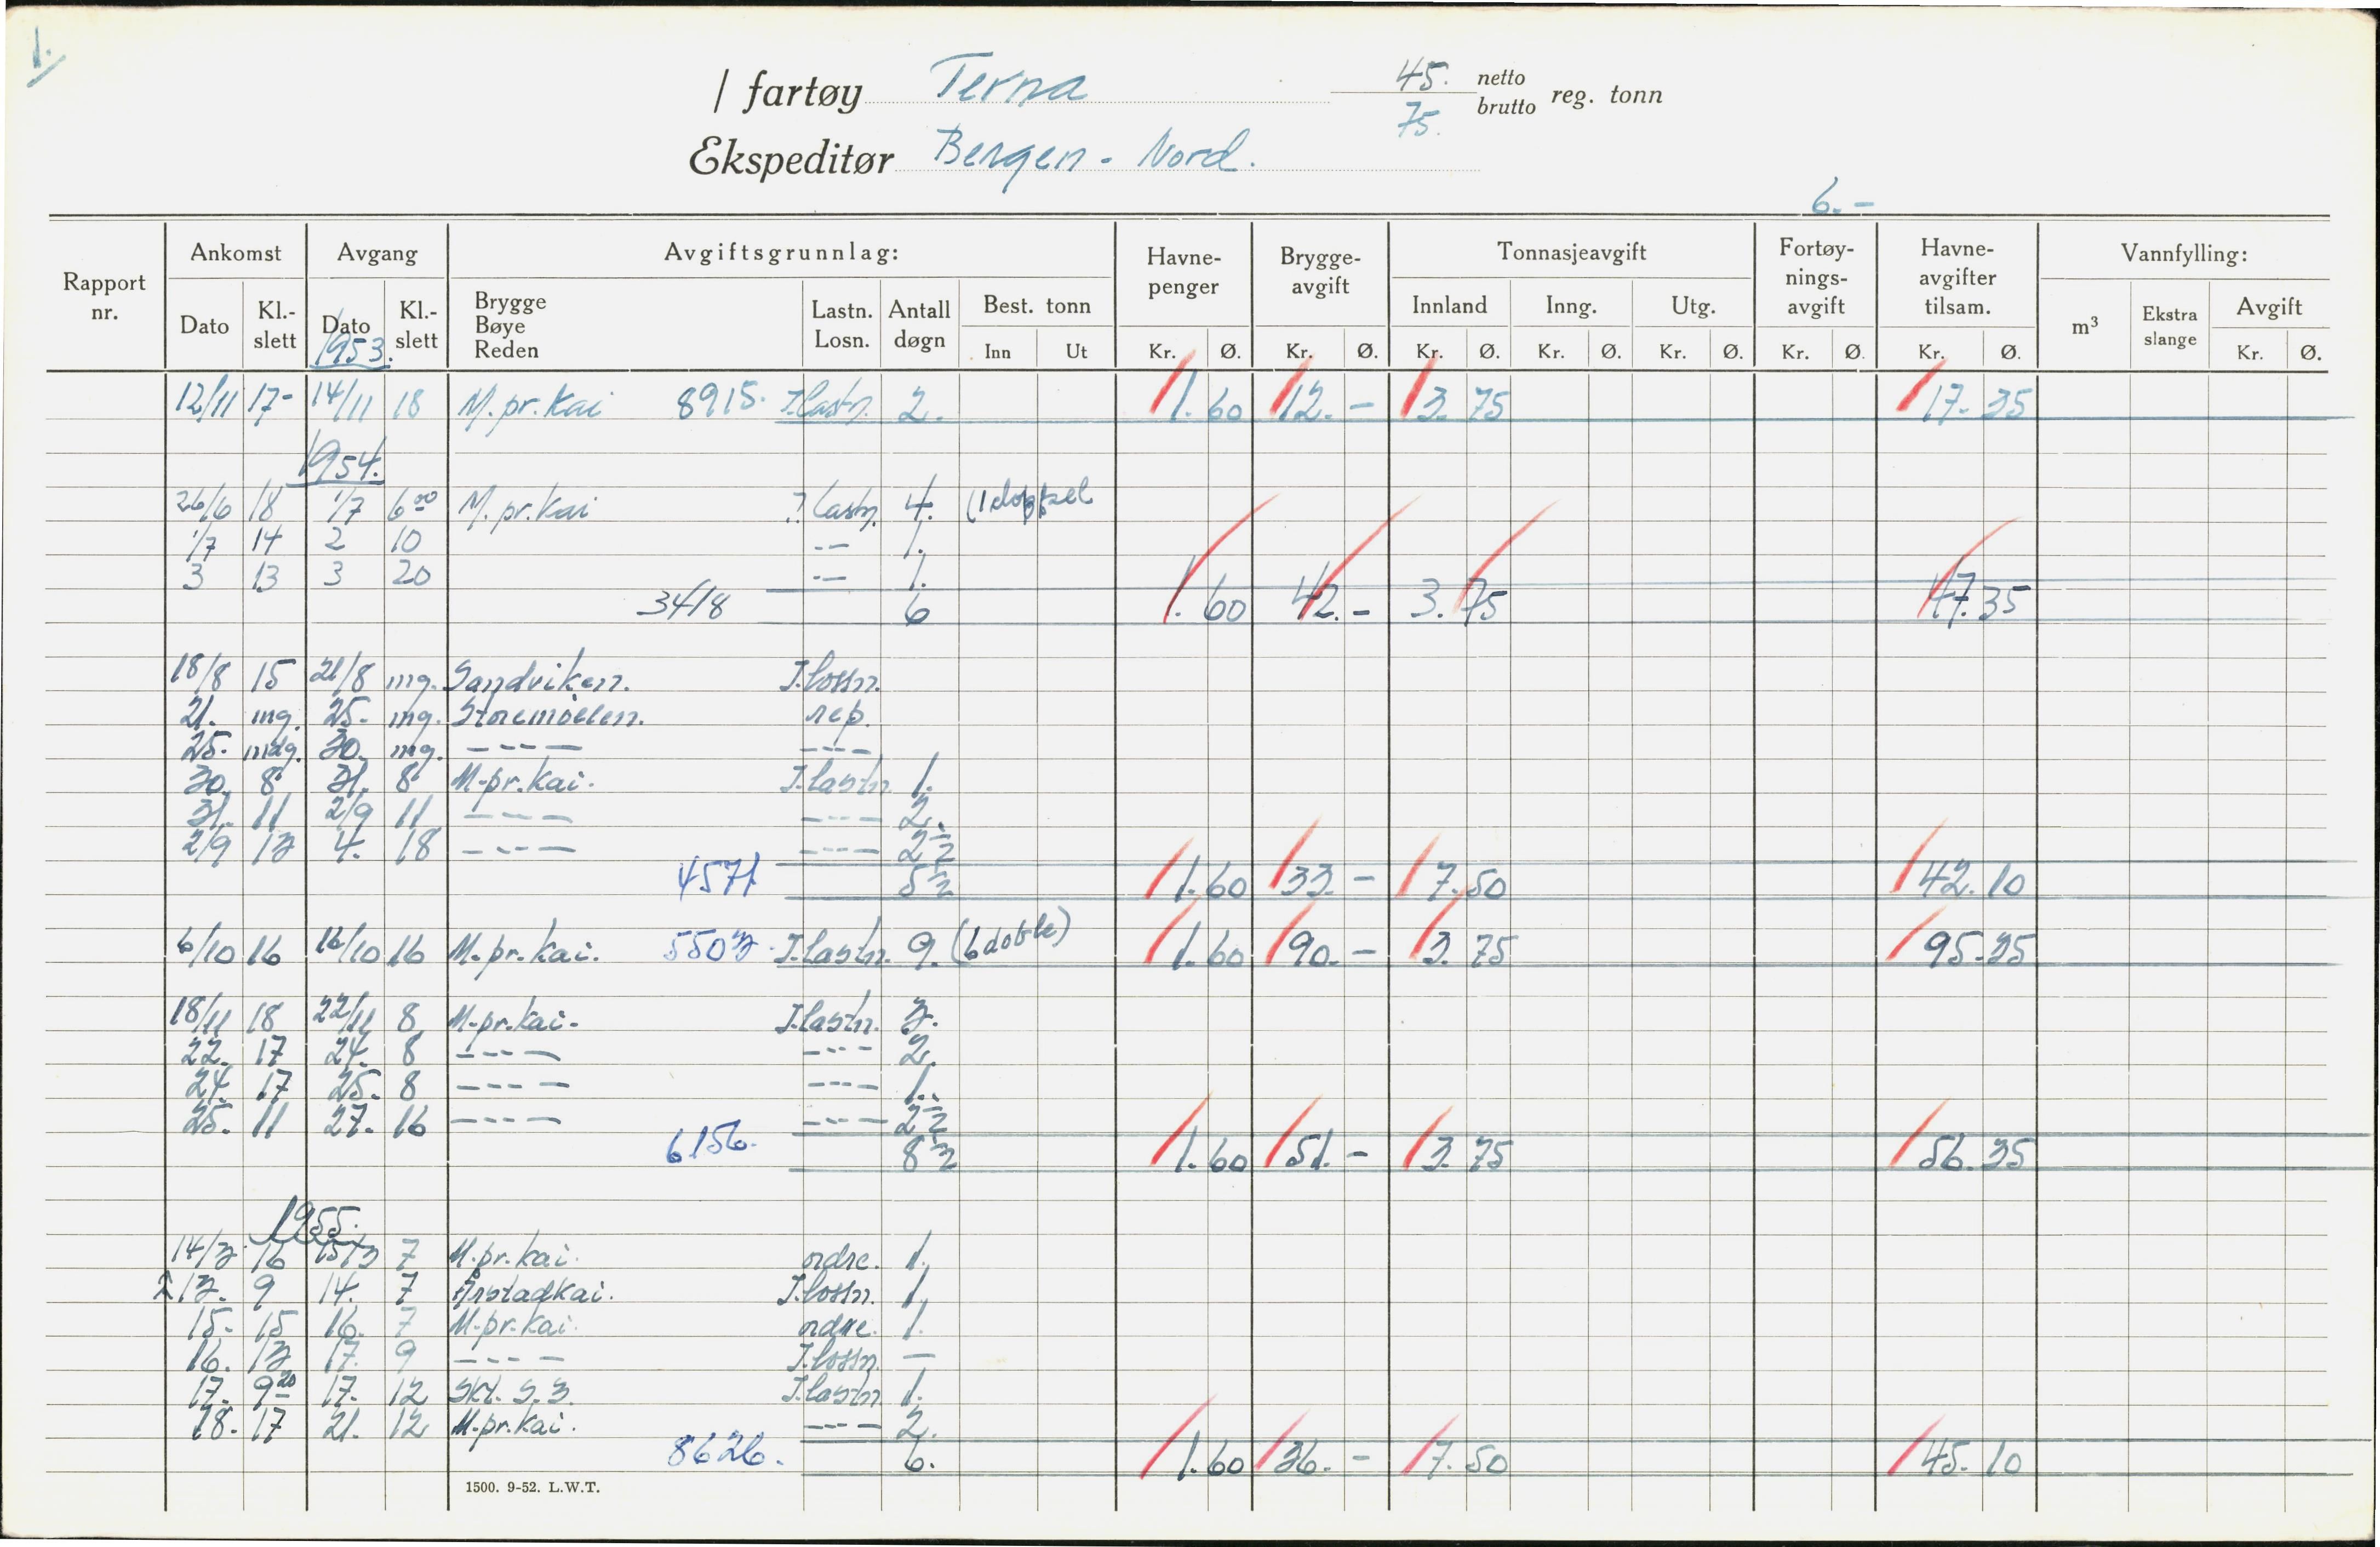 1.
/ fartøy Terna 45. netto
75. brutto reg. tonn
Ekspeditør Bergen - Nord.
6.-
Rapport nr. Ankomst Avgang Avgiftsgrunnlag: Havnepenger Bryggeavgift Tonnasjeavgift Fortøynings-avgift Havneavgifter tilsam. Vannfylling:
Dato Kl.-slett Dato Kl.-slett Brygge Bøye Reden Lastn. Losn. Antall døgn Best. tonn Innland Inng. Utg. m³ Ekstra slange Avgift
Inn Ut Kr. Ø. Kr. Ø. Kr. Ø. Kr. Ø. Kr. Ø. Kr. Ø. Kr. Ø. Kr. Ø.
1953.
12/11 17- 14/11 18 M.pr.kai 8915. I.lastn. 2. 1.60 12.- 3.75 17.35
1954.
26/6 18 1/7 6 00 M.pr.kai I.lastn. 4. (1 doppel
1/7 14 2 10 -.- 1.
3 13 3 20 -.- 1.
3418 6 1.60 42.- 3.75 47.35
18/8 15 21/8 mg. Sandviken. I.lossn.
21. mg. 25. mg. Storemøelen. rep.
25. mdg. 30. mg. ---- ---
30. 8 31. 8 M.pr.kai. I.lastn. 1.
31. 11 2/9 11 ---- ---- 2.
2/9 13 4. 18 ---- ---- 2½
4571 5½ 1.60 33.- 7.50 42.10
6/10 16 16/10 16 M.pr.kai. 5503. I.lastn. 9. (6 doble) 1.60 90.- 3.75 95.35
18/11 18 22/11 8 M.pr.kai. I.lastn. 3.
22. 17 24. 8 ---- ---- 2.
24. 17 25. 8 ---- ---- 1.
25. 11 27. 16 ---- ---- 2½
6156. 8½ 1.60 51.- 3.75 56.35
1955.
14/3. 16 15/3 7 M.pr.kai. ordre. 1.
13. 9 14. 7 Årstadkai. I.lossn. 1.
15. 15 16. 7 M.pr.kai. ordre. 1.
16. 13 17. 9 ---- I.lossn. —
17. 9 20 17. 12 Skt. S.3. I.lastn 1.
18. 17 21. 12 M.pr.kai. ---- 2.
8626. 6. 1.60 36.- 7.50 45.10
1500. 9-52. L.W.T.